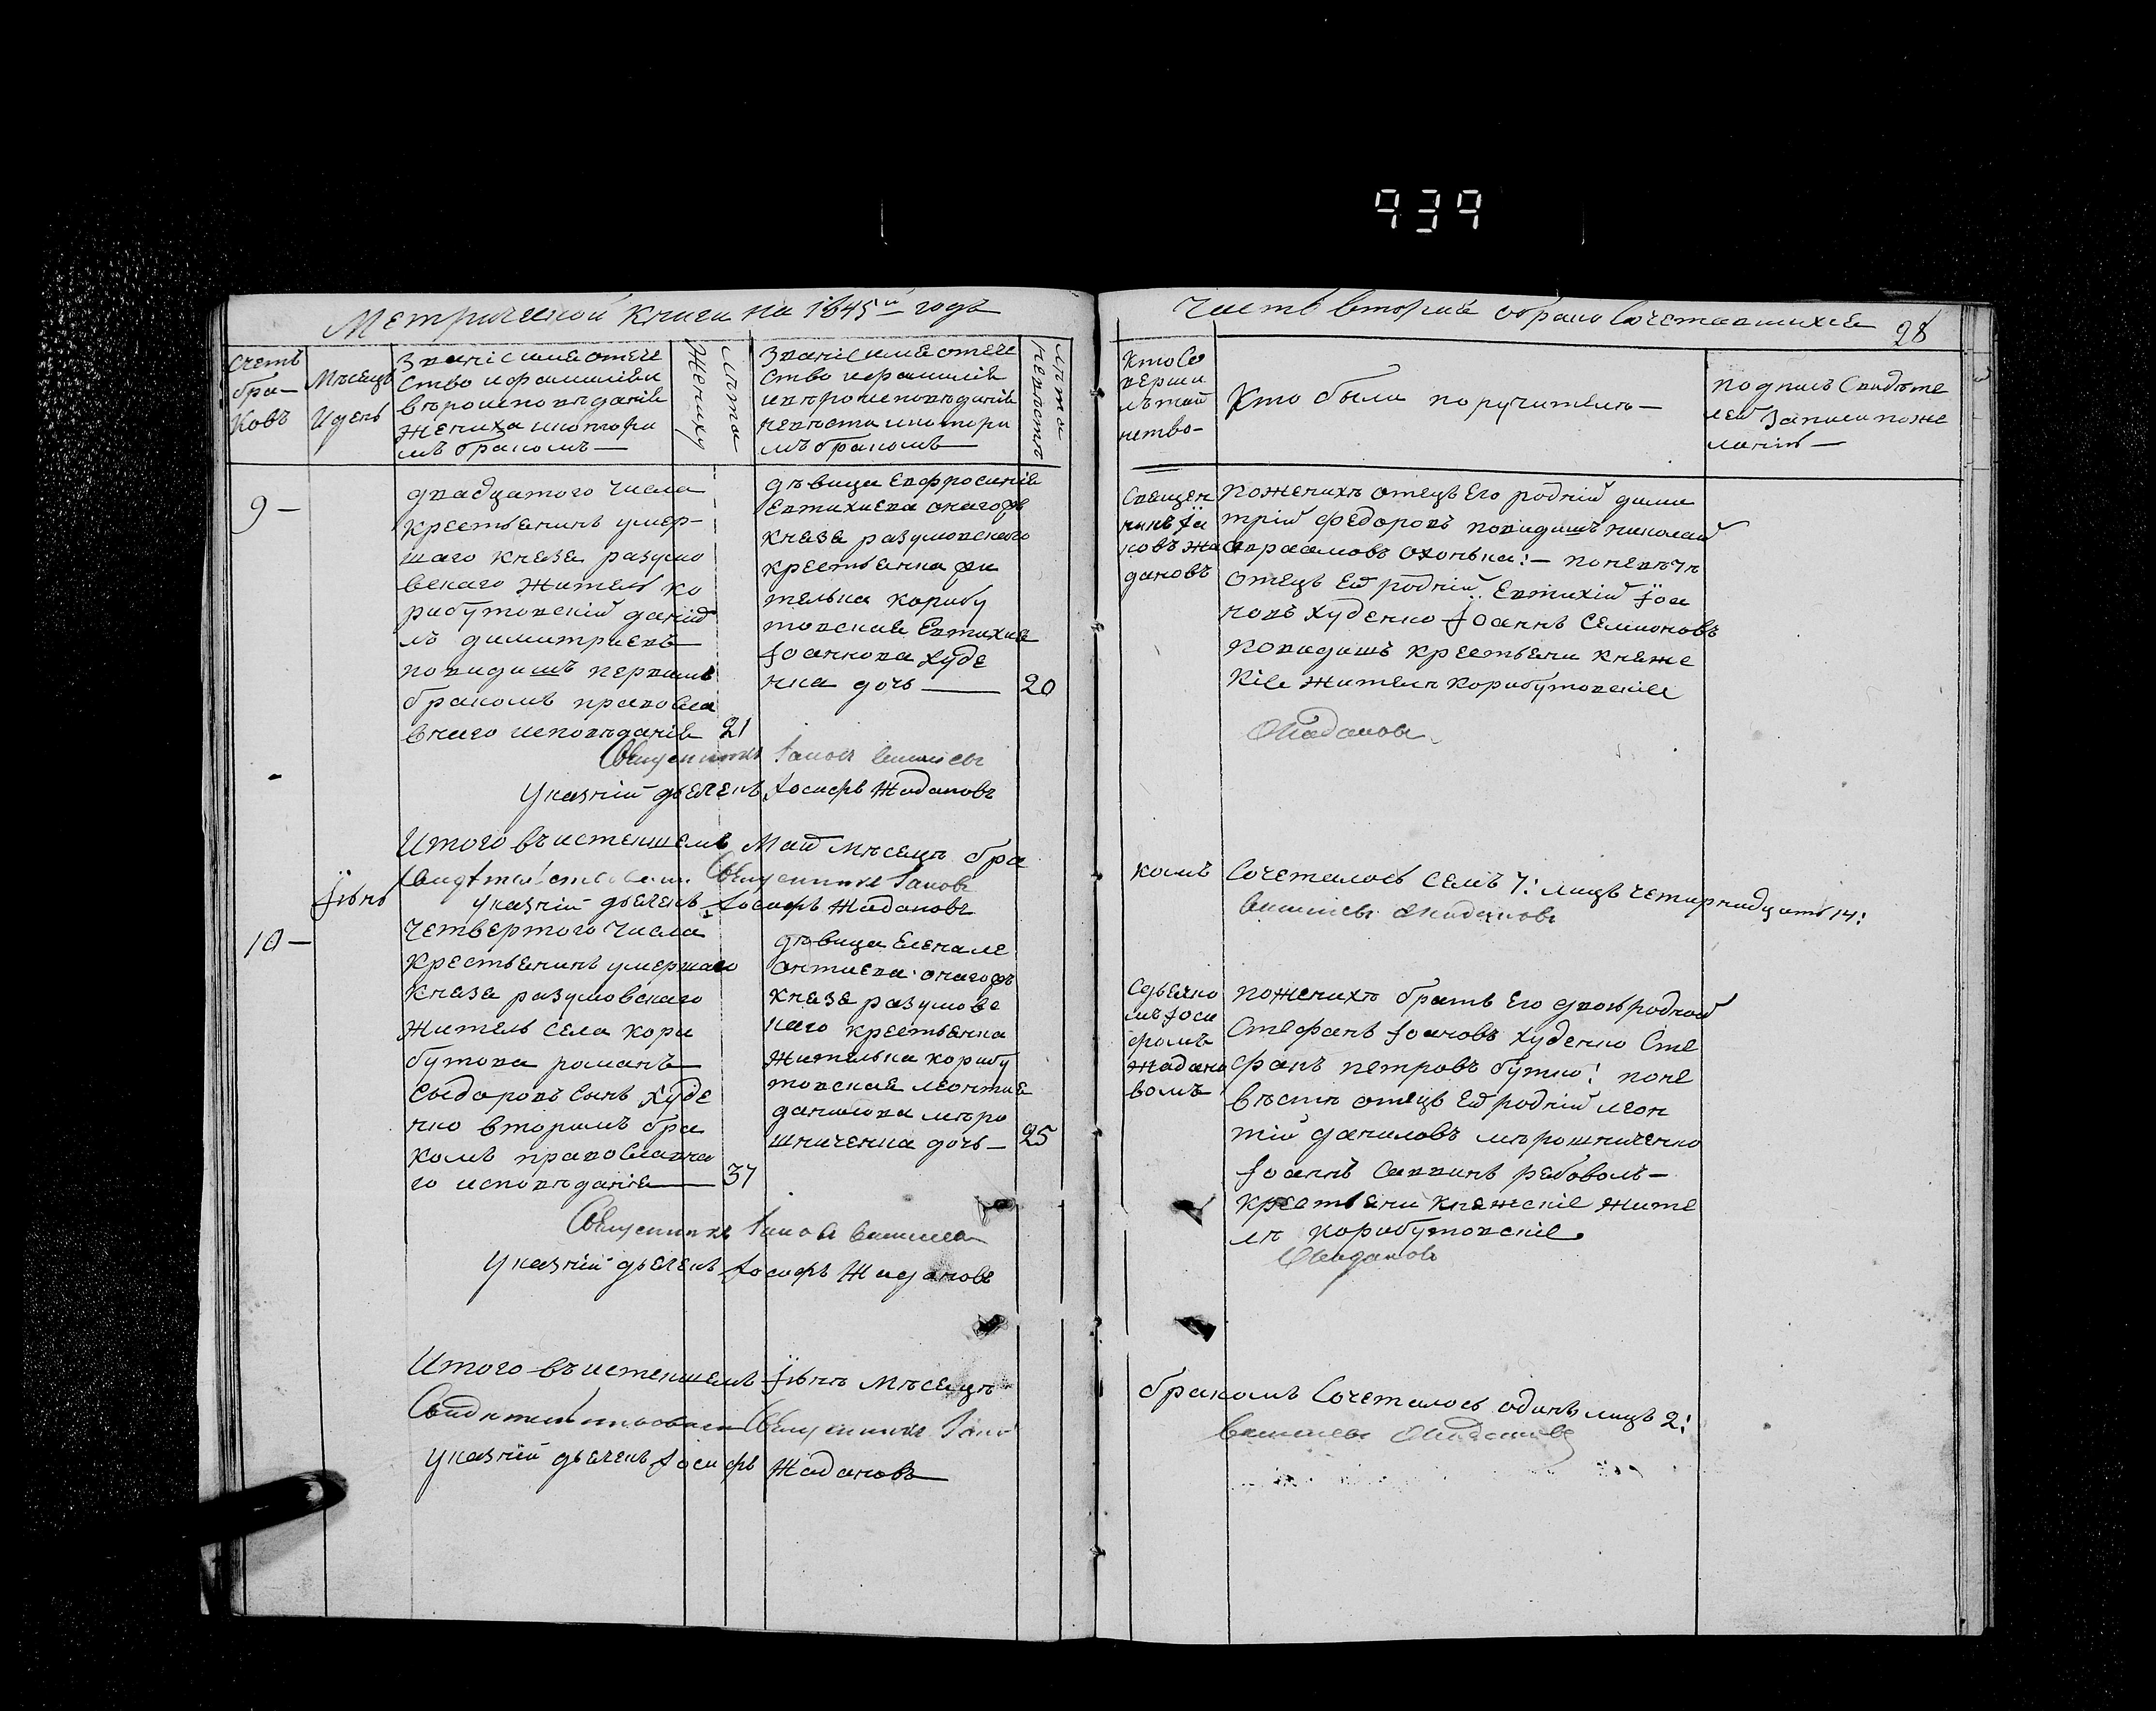 939
Метрической книги на 1845й годъ
Часть вторая о бракосочетавшихся
28
Счетъ
бра-
ковъ
Мѣсецъ
и день
Званіе имя отече
ство и фамилія и
вѣроисповѣданія
жениха и которы
мъ бракомъ —
Лѣта
жениху
Званіе имя отече
ство и фамилія
и вѣроисповѣданія
невѣсты и которы
мъ бракомъ
Лѣта
невѣстѣ
Кто со
верши
лъ таи
нство-
Кто были поручители —
подпись свидѣте
лей записи по же
ланію —
9 —
двадцатого числа
крестьянинъ умер-
шаго князя разумо
вскаго житель ко
рибутовскій даніи
лъ димитріевъ
повидишъ первымъ
бракомъ правосла
внаго исповѣданія 21
дѣвица Евфросинія
Евтихиева онаго жъ
князя разумовскаго
крестьянка жи
телька корибу
товская Евтихия
Іоаннова худе
нка дочь — 20
Священ
никъ Іа
ковъ Жа
дановъ
по женихѣ отецъ его родній дими
трій федоровъ повидишъ николай
авраамовъ охонька: — по невѣстѣ
отецъ ей родній Евтихій Іоа
новъ худенко Іоаннъ Семионовъ
повидишъ крестьяни княже
кіе жители корибутовскіе
Жадановъ
Священникъ Іаковъ
Указній дьяченъ Іосифъ Жадановъ
Итого въ истекшемъ Май мѣсецѣ бра
комъ Сочеталось семъ 7: лицъ четирнадцять 14:
Священникъ Іаковъ
Жадановъ
Іюнь
указній дьяченъ Іосифъ Жадановъ
10 —
четвертого числа
крестьянинъ умершаго
князя разумовскаго
житель села кори
бутова романъ
Сыдоровъ сынъ худе
нко вторимъ бра
комъ православна
го исповѣданія — 37
дѣвица Елена ле
онтиева онаго жъ
князя разумовс
каго крестьянка
жителька корибу
товская леонтия
данилова мѣро
шниченка дочь — 25
Сдьячко
мъ Іоси
фомъ
Жадано
вомъ
по женихѣ братъ его двоюродной
Стефанъ Іоановъ худенко Сте
фанъ петровъ бутко: по не
вѣстѣ отецъ ей родній леон
тій даниловъ мѣрошниченко
Іоаннъ Саввинъ рябоволъ —
крестьяни княжскіе жите
лѣ корибутовскіе.
Жадановъ
Священникъ Іаковъ
Указній дьяченъ Іосифъ Жадановъ
Итого въ истекшемъ Іюнѣ мѣсецѣ
бракомъ Сочеталось одинъ лицъ 2:
Священникъ
указній дьяченъ Іосифъ Жадановъ